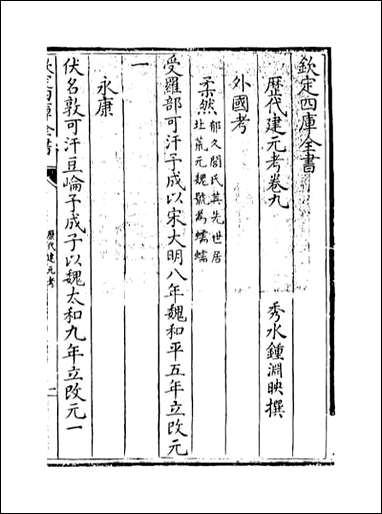 欽定四庫全書
歷代建元考卷九
秀水鍾淵映撰
外國考
柔然 郁久閭氏其先世居
北荒元魏號為蠕蠕
受羅部可汗予成以宋大明八年魏和平五年立改元
一
永康
伏名敦可汗豆崘予成子以魏太和九年立改元一
欽定四庫全書
歷代建元考